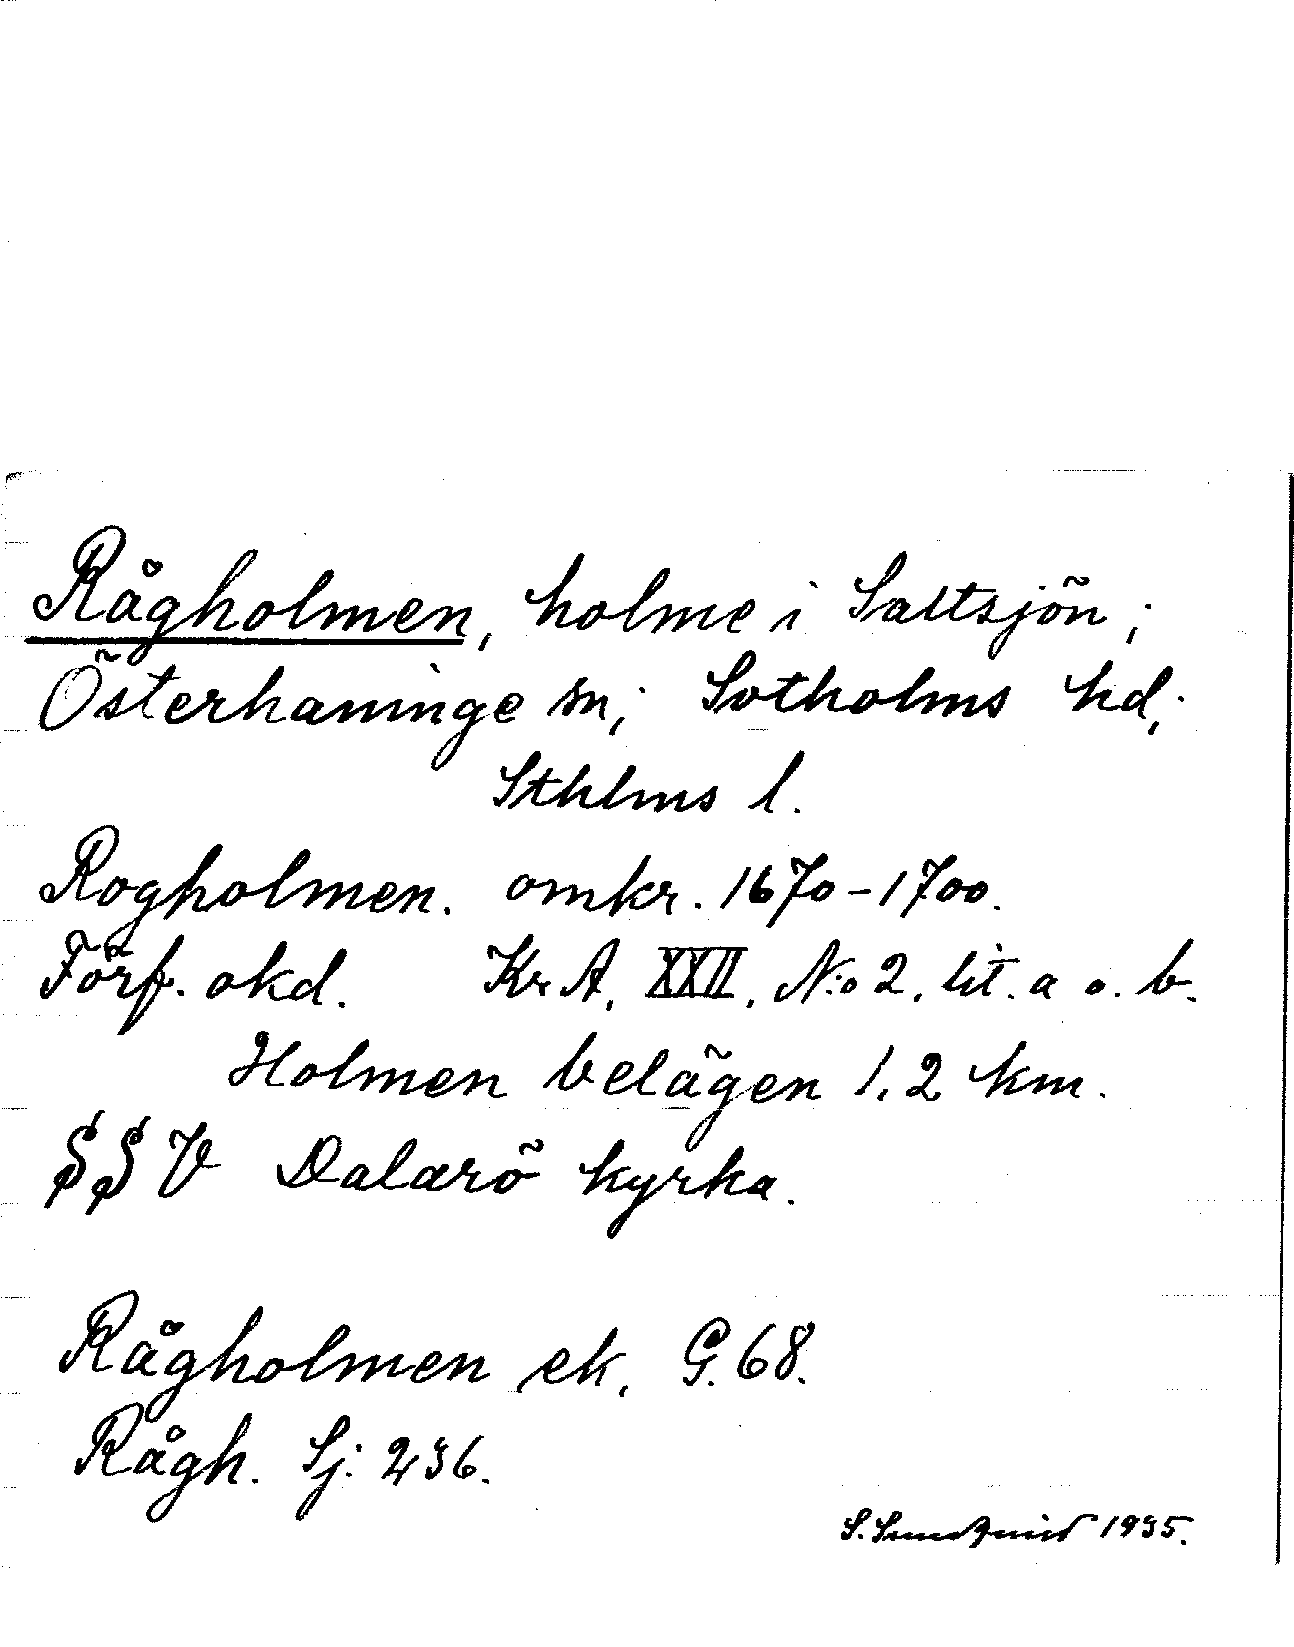 Rågholmen, holme i Saltsjön;
Österhaninge sn; Sotholms hd;
Sthlms l.
Rogholmen. omkr. 1670-1700.
Förf. okd. Kr A, XXII, N:o 2, lit. a o. b.
Holmen belägen 1,2 km.
SSV Dalarö kyrka.
Rågholmen ek. G. 68.
Rågh. Sj: 236.
S. Sundqvist 1935.